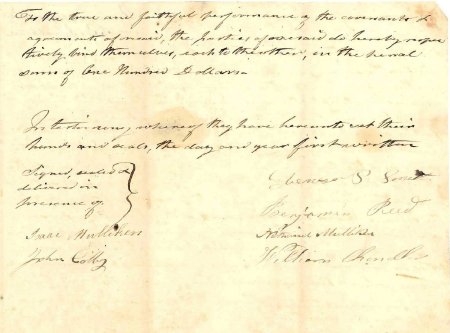 To the true and faithful performance of the covenants &
agreements aforesaid, the parties aforesaid do hereby respec
tively bind themselves, each to the other, in the penal
sum of One Hundred Dollars.
In testimony whereof they have hereunto set their
hands and seals, the day and year first written
Signed, sealed &
delivered in
presence of
Isaac Mulliken
John Colby
Ebenezer P.
Benjamin Reed
Nathaniel Mulliken
William Chandler